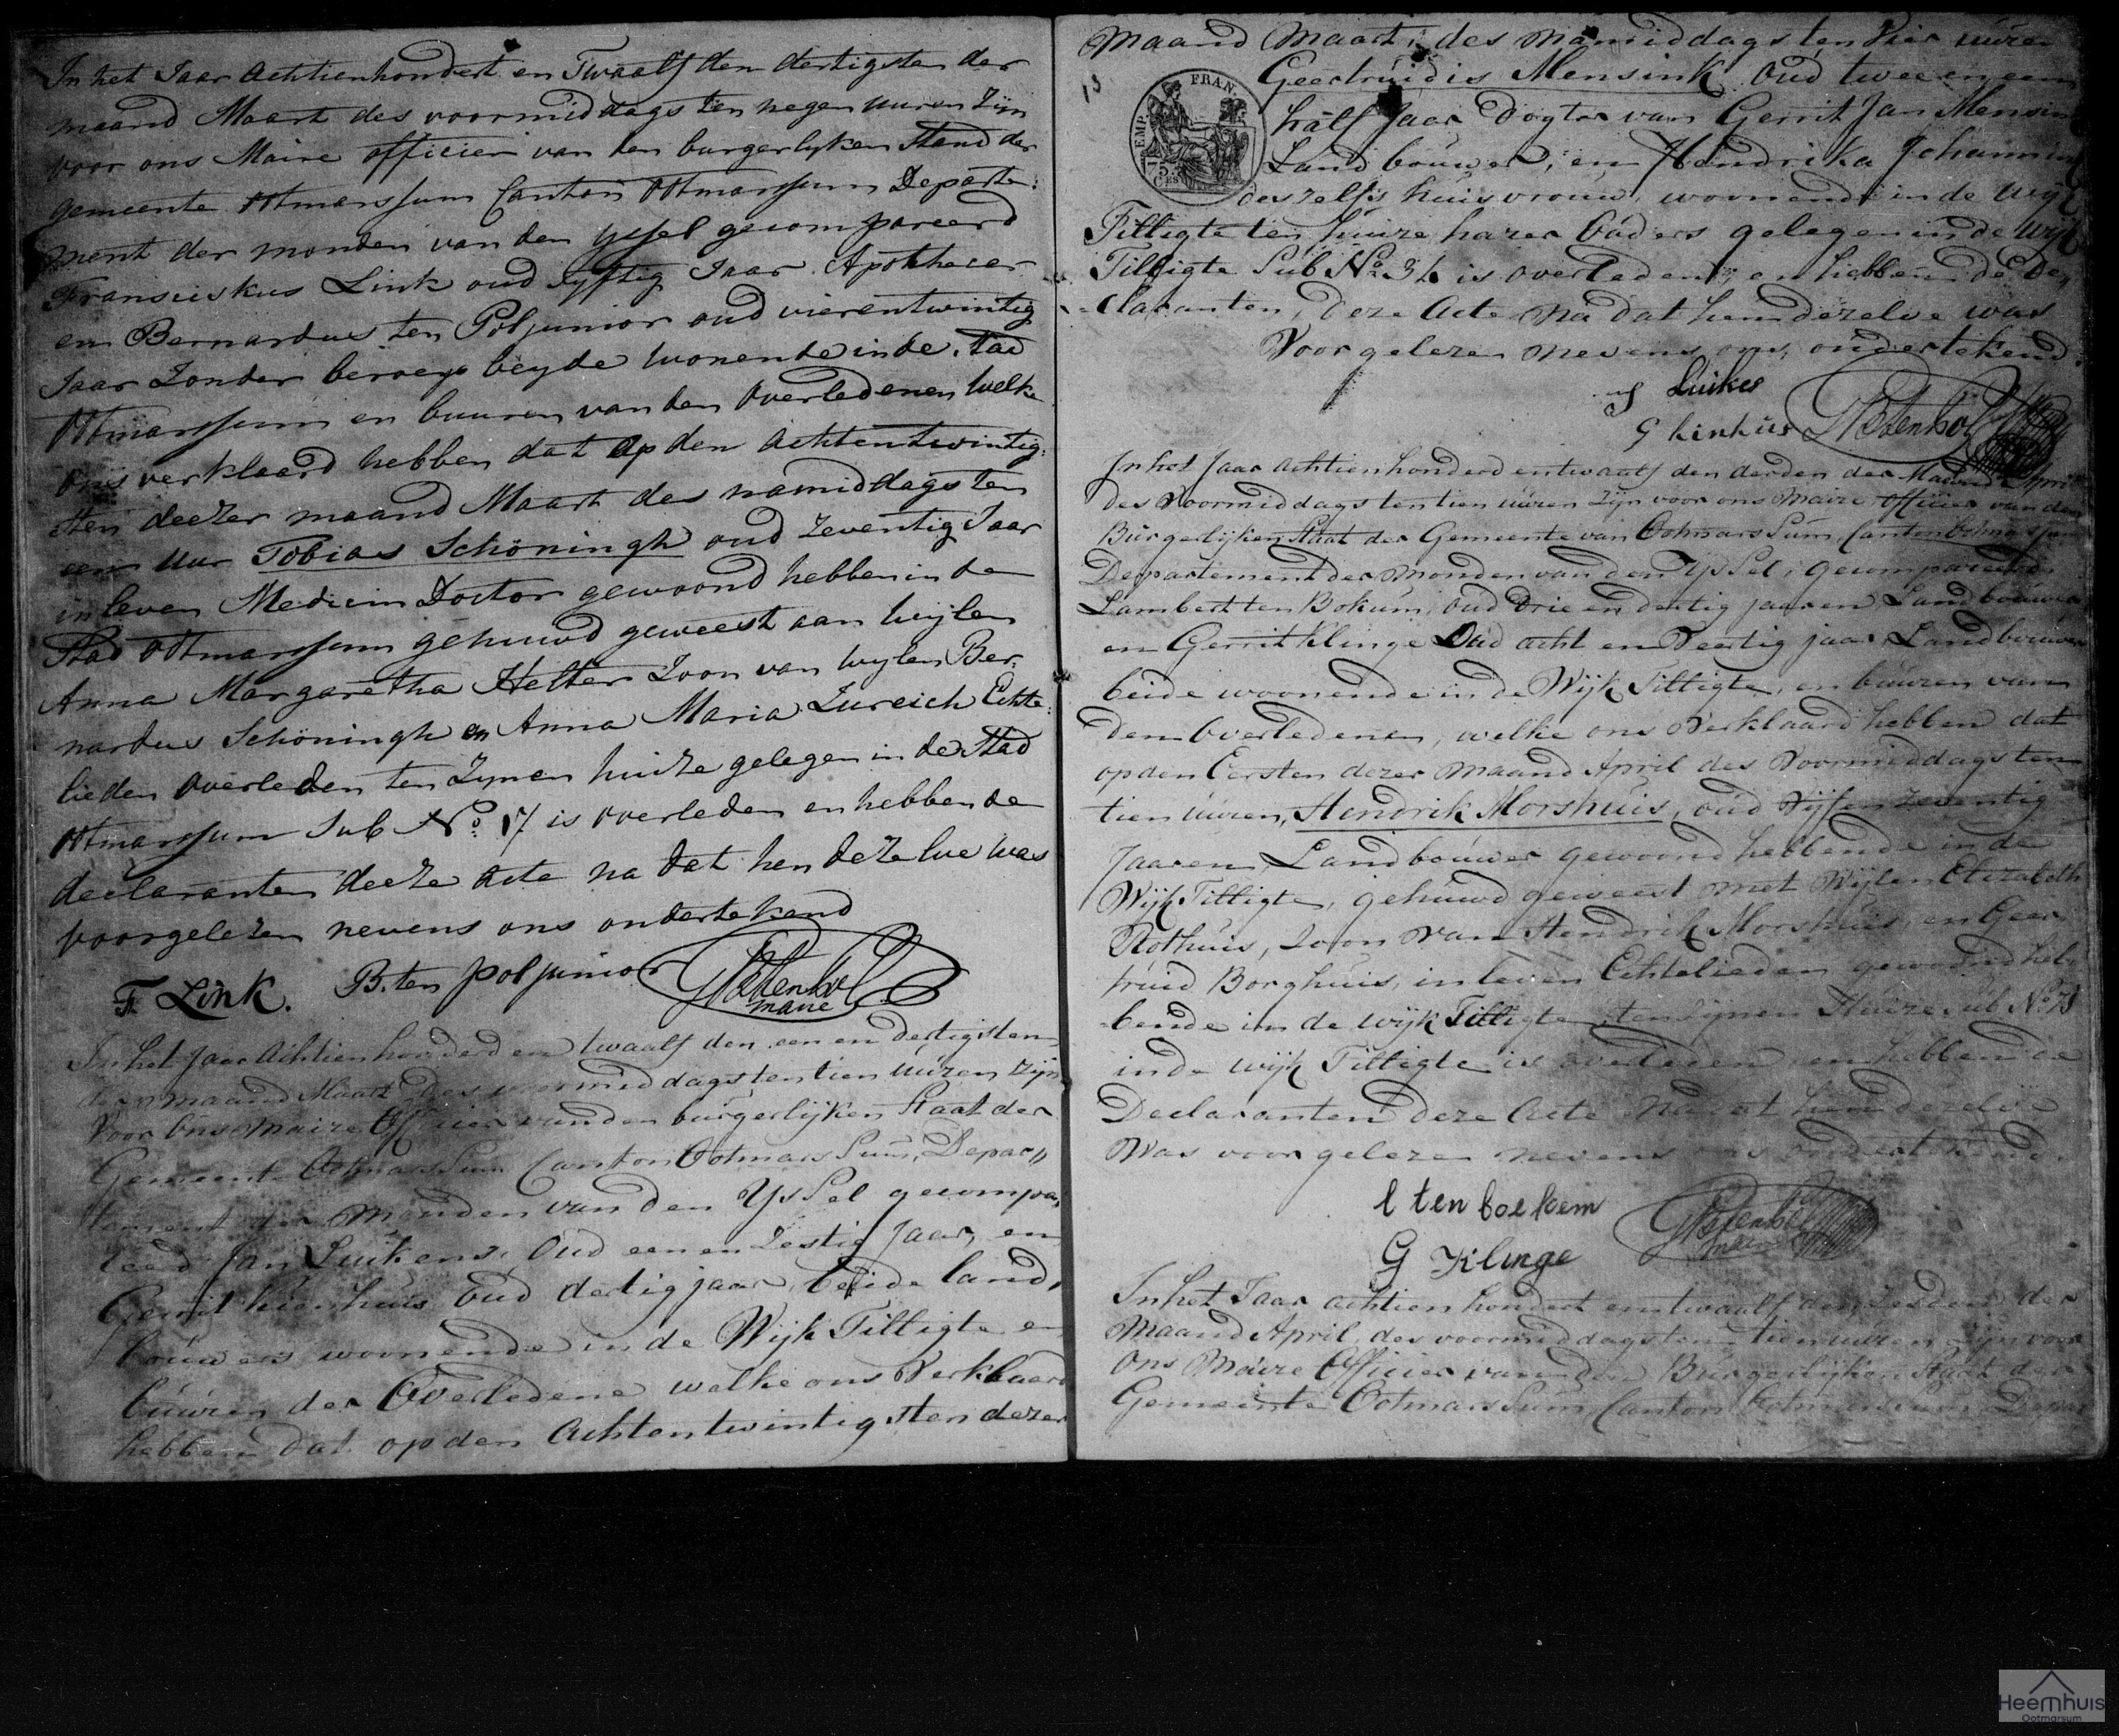 In het Jaar Achtienhondert en Twaalf den dertigsten der
maand Maart des voormiddags ten negen uuren Zijn
voor ons Maire officier van den burgerlyken Stand der
gemeente Ottmarssum Canton Ottmarssum Departe:
ment der monden van den yssel gecompareerd
Fransciskus Link oud vyftig Jaar Apothecer
en Bernardus ten Pol junior oud vierentwintig
Jaar Zonder beroep beyde wonende in de Stad
Ottmarssum en buuren van den Overledenen welke
ons verklaard hebben dat op den achtentwintig:
sten deezer maand Maart des namiddags ten
een uur Tobias Schöningh oud Zeventig Jaar
in leven Medicin Doctor gewoond hebben in de
Stad Ottmarssum gehuwd geweest aan wijlen
Anna Margaretha Helter Zoon van wylen Ber:
nardus Schöningh en Anna Maria Zureich Echte:
lieden Overleden ten Zynen huize gelegen in de Stad
Ottmarssum Sub No. 17 is overleden en hebben de
declaranten deeze acte na dat hen dezelve was
voorgelezen nevens ons ondertekend
F. Link. B. ten pol junior
maire
In het Jaar Achtien honderd en twaalf den een en dertigsten
der maand Maart des voormiddags ten tien uuren zijn
Voor Ons Maire Officier van den burgerlijken Staat der
Gemeente OotmarsSum Canton OotmarsSum, Depar,,
tement der Monden van den YsSel gecompa,,
reerd Jan Luikens, Oud een en Zestig Jaar, en
Gerrit kienhuis Oud dertig jaar, beide land,,
bouwers woonende in de Wijk Tilligte en
buuren der Overledene welke ons Verklaard
hebben dat op den Achtentwintigsten dezer
maand Maart, des Namiddags ten Vier uuren
13
EMP. FRAN.
75 CES
Geertruidis Mensink Oud twee en een
half Jaar Dogter van Gerrit Jan Mensink
Landbouwer, en Hendrika Johannink
deszelfs huisvrouw, woonende in de wijk
Tilligte ten huize harer Ouders gelegen in de Wijk
Tilligte Sub No. 34 is overleden, en hebben de De,,
claranten, deze Acte na dat hen dezelve was
Voorgelezen nevens ons, ondertekend
J Luikes
G kinhuis
In het Jaar achtien honderd en twaalf den derden der Maand April
des Voormiddags ten tien uuren zijn voor ons Maire Officier van den
Burgerlijken Staat der Gemeente van OotmarsSum, Canton Ootmarssum
Departement der Monden van den YsSel, gecompareerd
Lambert ten Bokum, oud Drie en dertig jaaren Landbouwer
en Gerrit Klinge Oud acht en Veertig jaar Landbouwer
beide woonende in de Wijk Tilligte, en buuren van
den Overledenen, welke ons Verklaard hebben dat
op den Eersten dezer maand April des Voormiddags ten
tien uuren, Hendrik Morshuis, oud Vijf en zeventig
Jaaren, Landbouwer gewoond hebbende in de
Wijk Tilligte, gehuwd geweest met Wijlen Elizabeth
Rothuis, Zoon van Hendrik Morshuis, en Geer,,
truid Borghuis, in leven Echtelieden gewoond heb,,
bende in de wijk Tilligte, ten zijnen Huize Sub No.
in de wijk Tilligte is overleden en hebben de
Declaranten deze Acte Na dat hem dezelve
Was voorgelezen nevens ons ondertekend.
l ten boekem
G Klinge
maire
In het Jaar achtien hondert en twaalf den Zesden der
Maand April, des voormiddags ten tien uuren zijn voor
Ons Maire Officier van den Burgerlijken Staat der
Gemeente OotmarsSum, Canton Ootmarssum Depar
Heemhuis
Ootmarsum